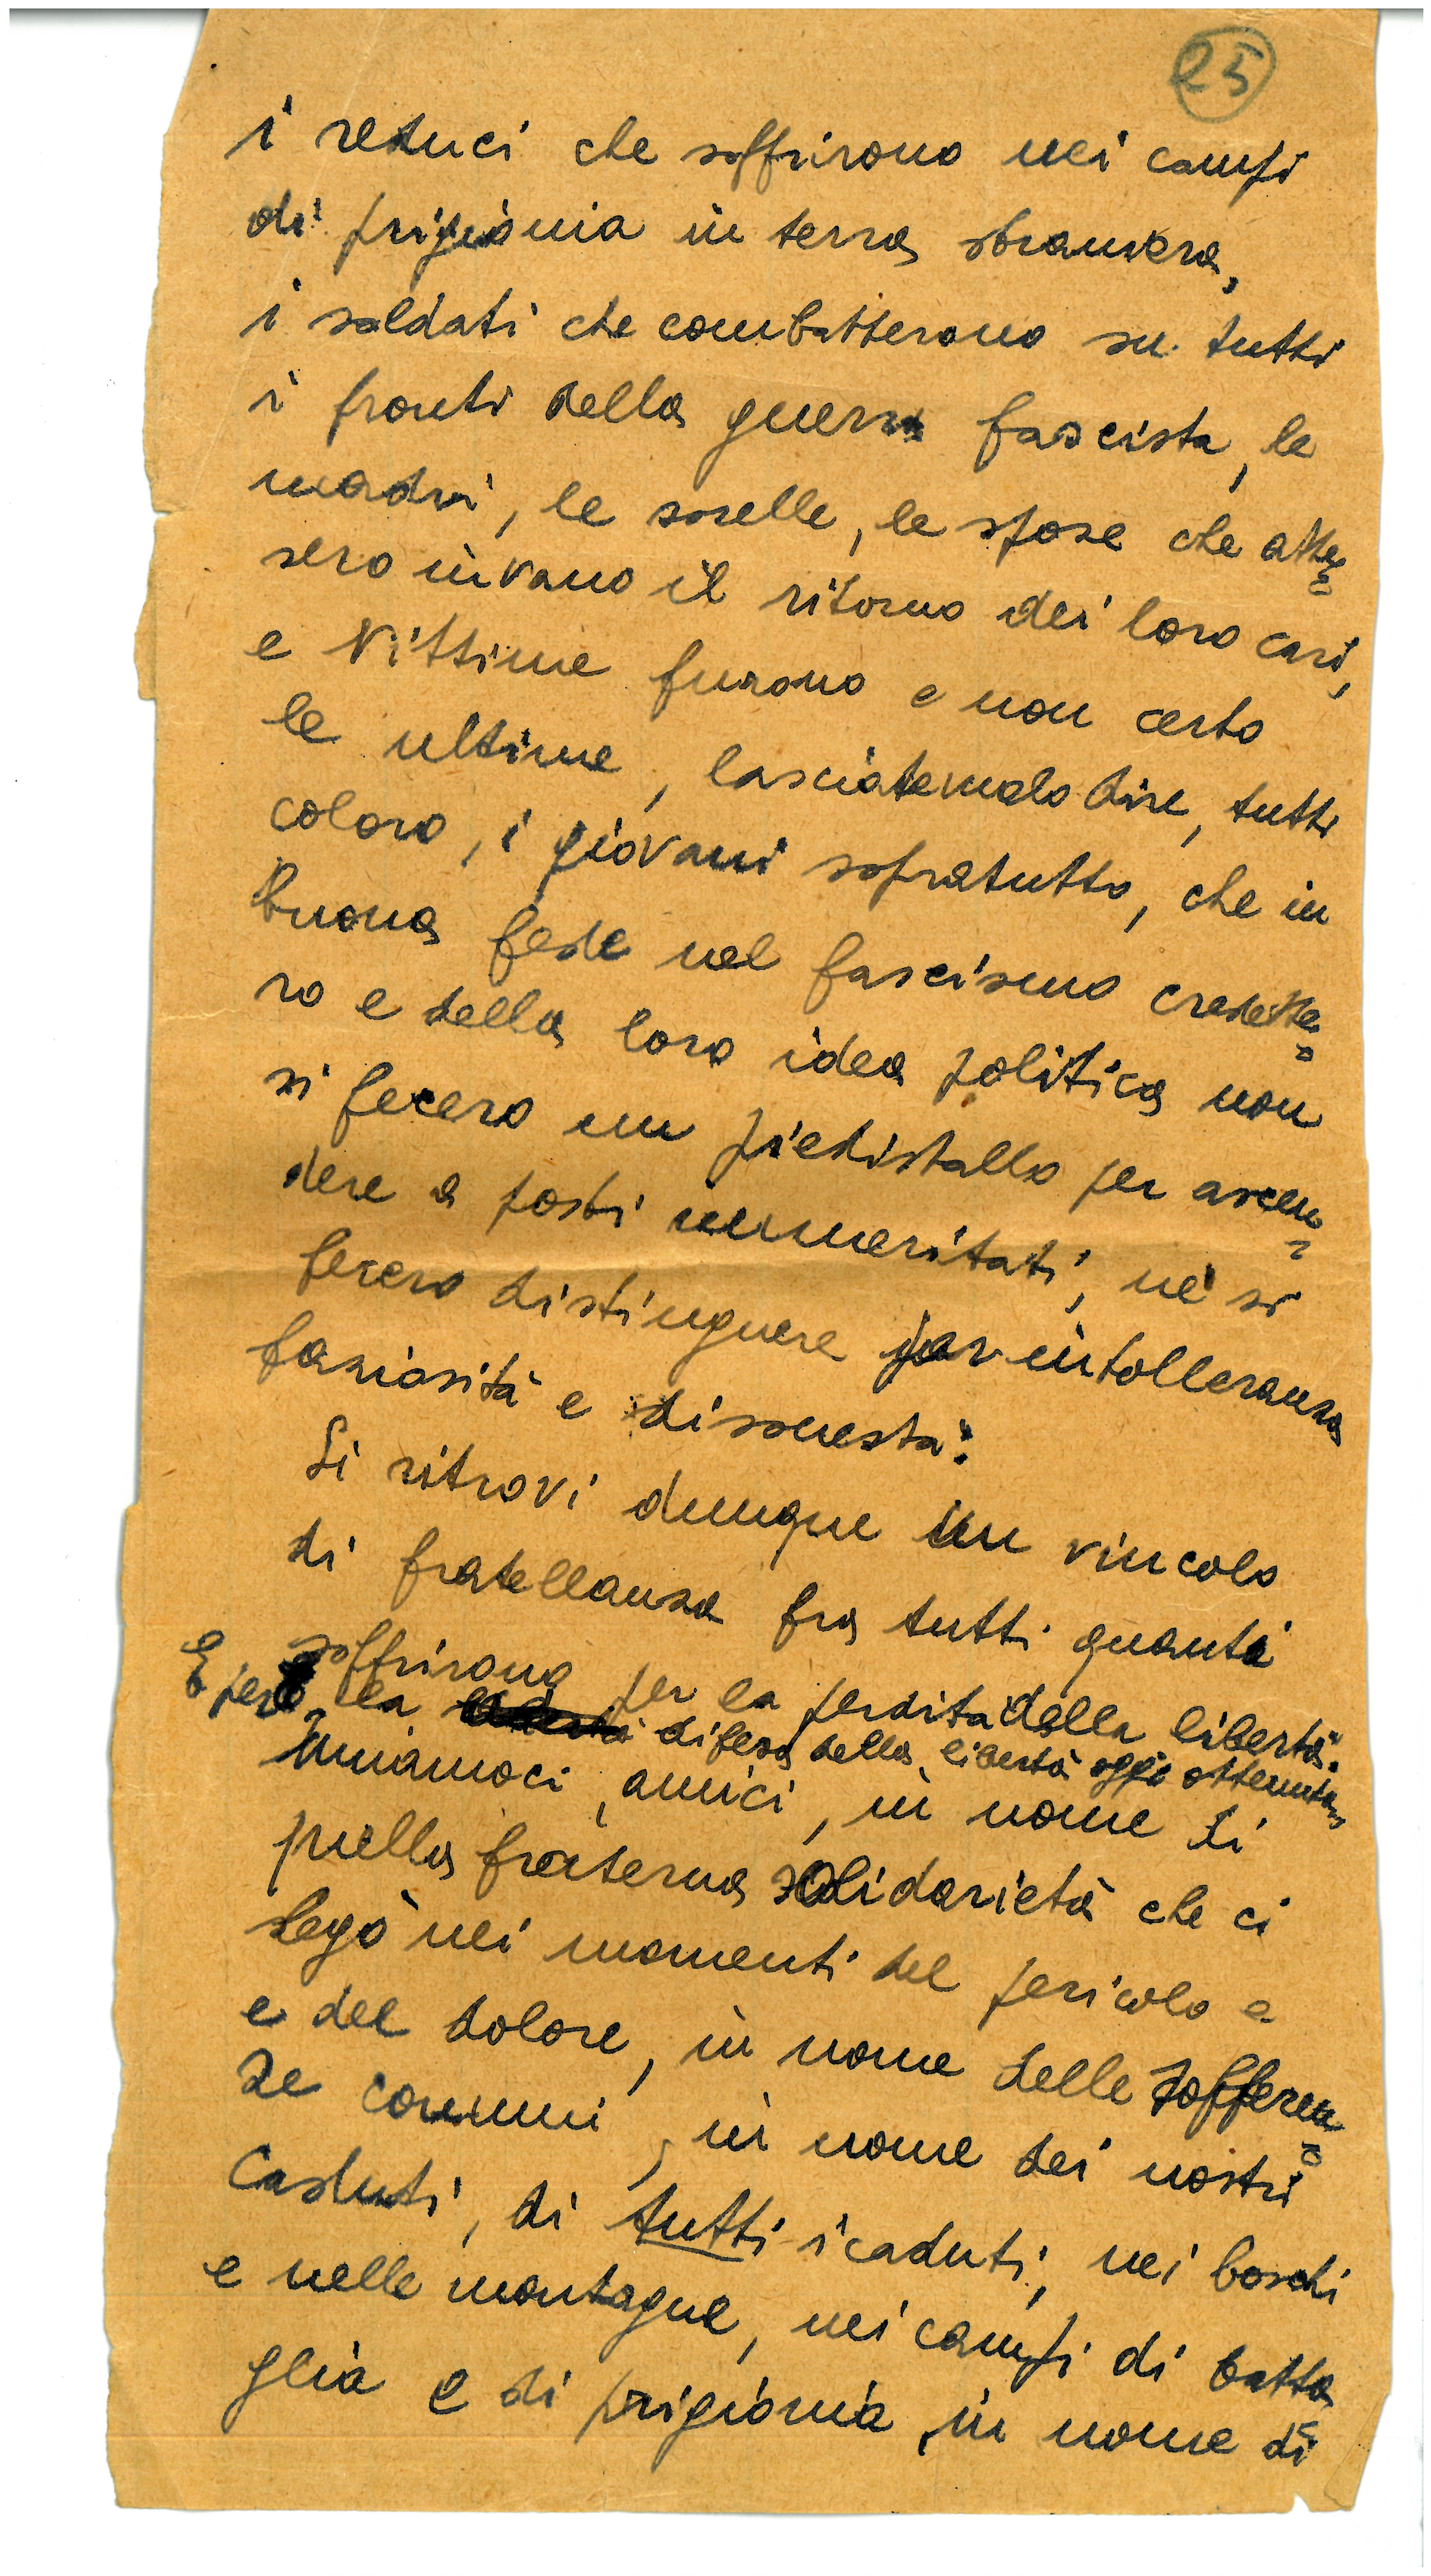 25
i reduci che soffrirono nei campi
di prigionia in terra straniera,
i soldati che combatterono su tutti
i fronti della guerra fascista, le
madri, le sorelle, le spose che atte=
sero invano il ritorno dei loro cari,
e vittime furono e non certo
le ultime, lasciatemelo dire, tutti
coloro, i giovani sopratutto, che in
buona fede nel fascismo credette=
ro e della loro idea politica non
si fecero un piedistallo per ascen=
dere a posti immeritati, nè si
fecero distinguere per intolleranza
faziosità e disonestà.
Si ritrovi dunque un vincolo
di fratellanza fra tutti quanti
soffrirono per la perdita della libertà.
E per la difesa della libertà oggi ottenuta,
Uniamoci, amici, in nome di
quella fraterna solidarietà che ci
legò nei momenti del pericolo e
e del dolore, in nome delle sofferen=
ze comuni, in nome dei nostri
Caduti, di tutti i caduti, nei boschi
e nelle montagne, nei campi di batta=
glia e di prigionia, in nome di